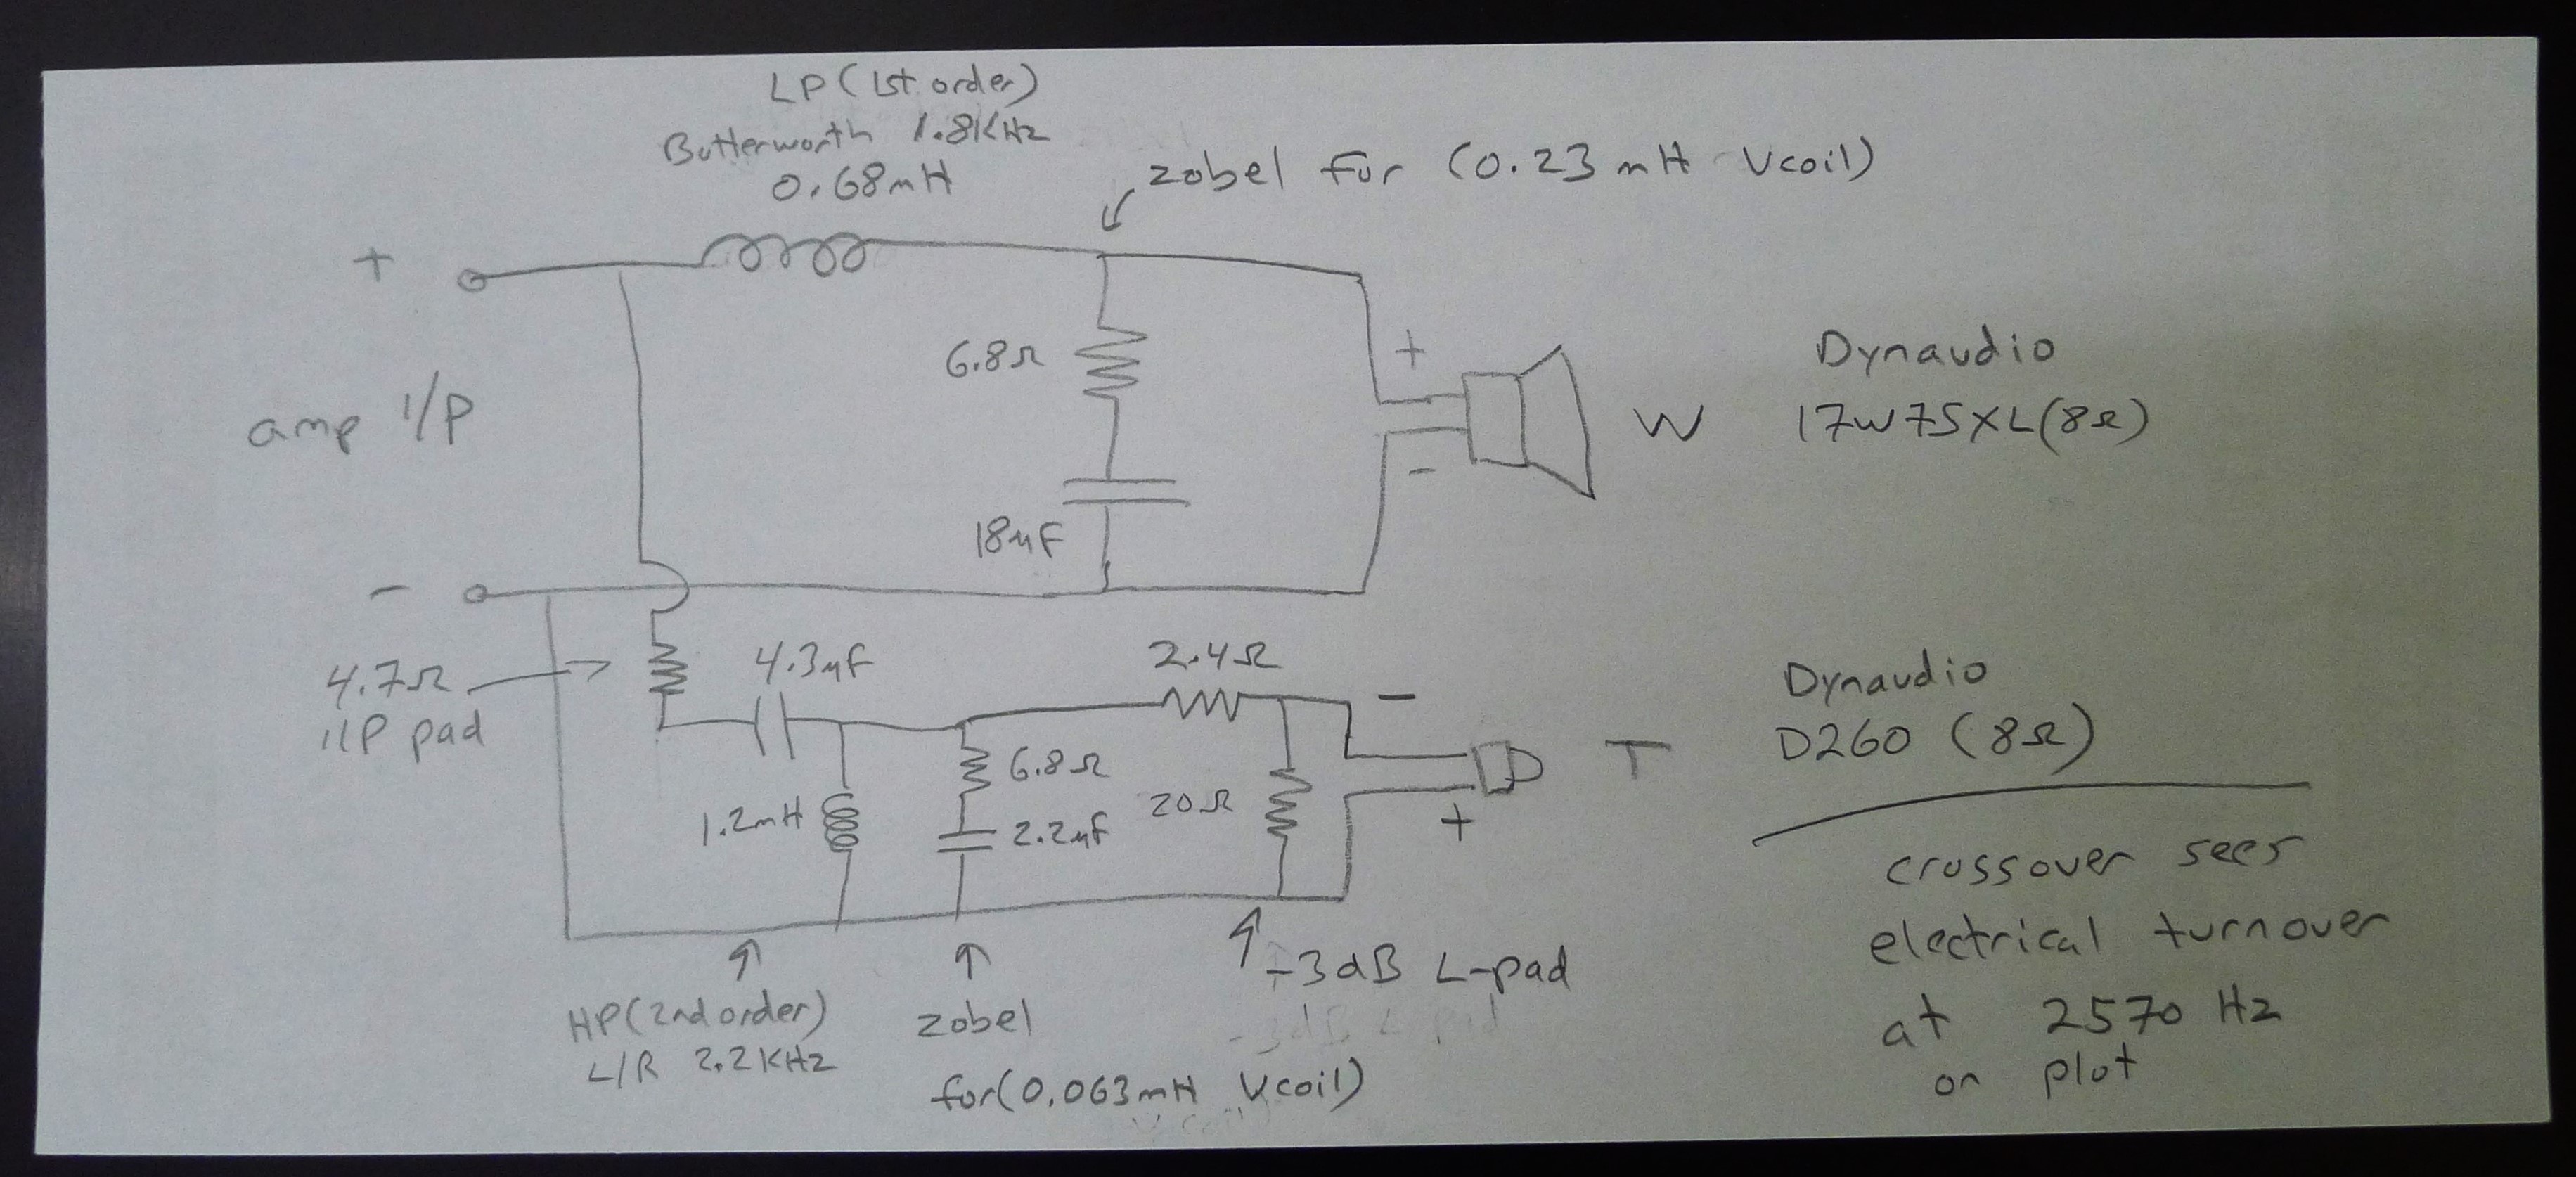 LP (1st order)
Butterworth 1.8KHz
0.68mH
zobel for (0.23 mH Vcoil)
+
6.8Ω
+
Dynaudio
amp I/P
W
17W75XL(8Ω)
-
18uF
-
4.7Ω
I/P pad
4.3uF
2.4Ω
-
Dynaudio
D260 (8Ω)
T
6.8Ω
1.2mH
2.2uF
20Ω
+
crossover sees
electrical turnover
at 2570 Hz
on plot
-3dB L-pad
-3dB L pad
HP(2nd order)
L/R 2.2KHz
zobel
for(0.063mH Vcoil)